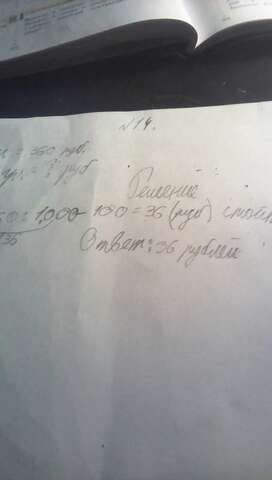 №14.
= 360 руб.
= ? руб
Решение
60 : 1.000 · 100 = 36 (руб) стоит
36
Ответ: 36 рублей